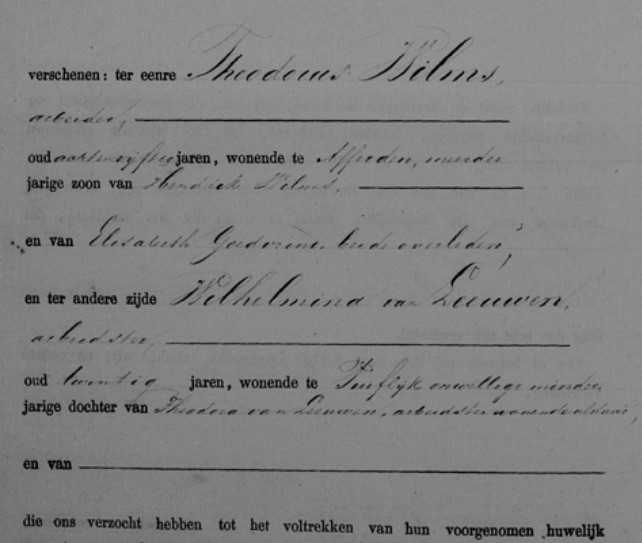 verschenen: ter eenre Theodorus Wilms,
arbeider,
oud achtenvijftig jaren, wonende te Afferden, meerder
jarige zoon van Hendrik Wilms,
en van Elisabeth beide overleden,
en ter andere zijde Wilhelmina van Leeuwen,
arbeidster,
oud twintig jaren, wonende te Puiflijk onwettige minder
jarige dochter van Theodora van Leeuwen, arbeidster wonende aldaar,
en van
die ons verzocht hebben tot het voltrekken van hun voorgenomen huwelijk